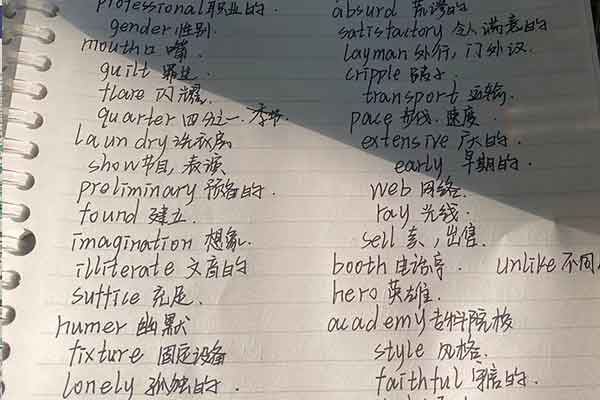 professional 职业的.
gender 性别.
mouth 口 嘴
guilt
flare 闪耀.
quarter 四分之一. 季节.
laundry 洗衣房
show 节目, 表演
preliminary 预备的.
found 建立.
imagination 想象.
illiterate 文盲的
suffice 充足.
humer 幽默
fixture 固定设备
lonely 孤独的.
absurd 荒谬的
satisfactory 令人满意的
layman 外行, 门外汉.
cripple
transport 运输.
pace 步伐. 速度.
extensive 广大的.
early 早期的.
web 网络.
ray 光线.
sell 卖, 出售.
booth 电话亭. unlike 不同
hero 英雄.
academy 专科院校
style 风格.
faithful 守信的.